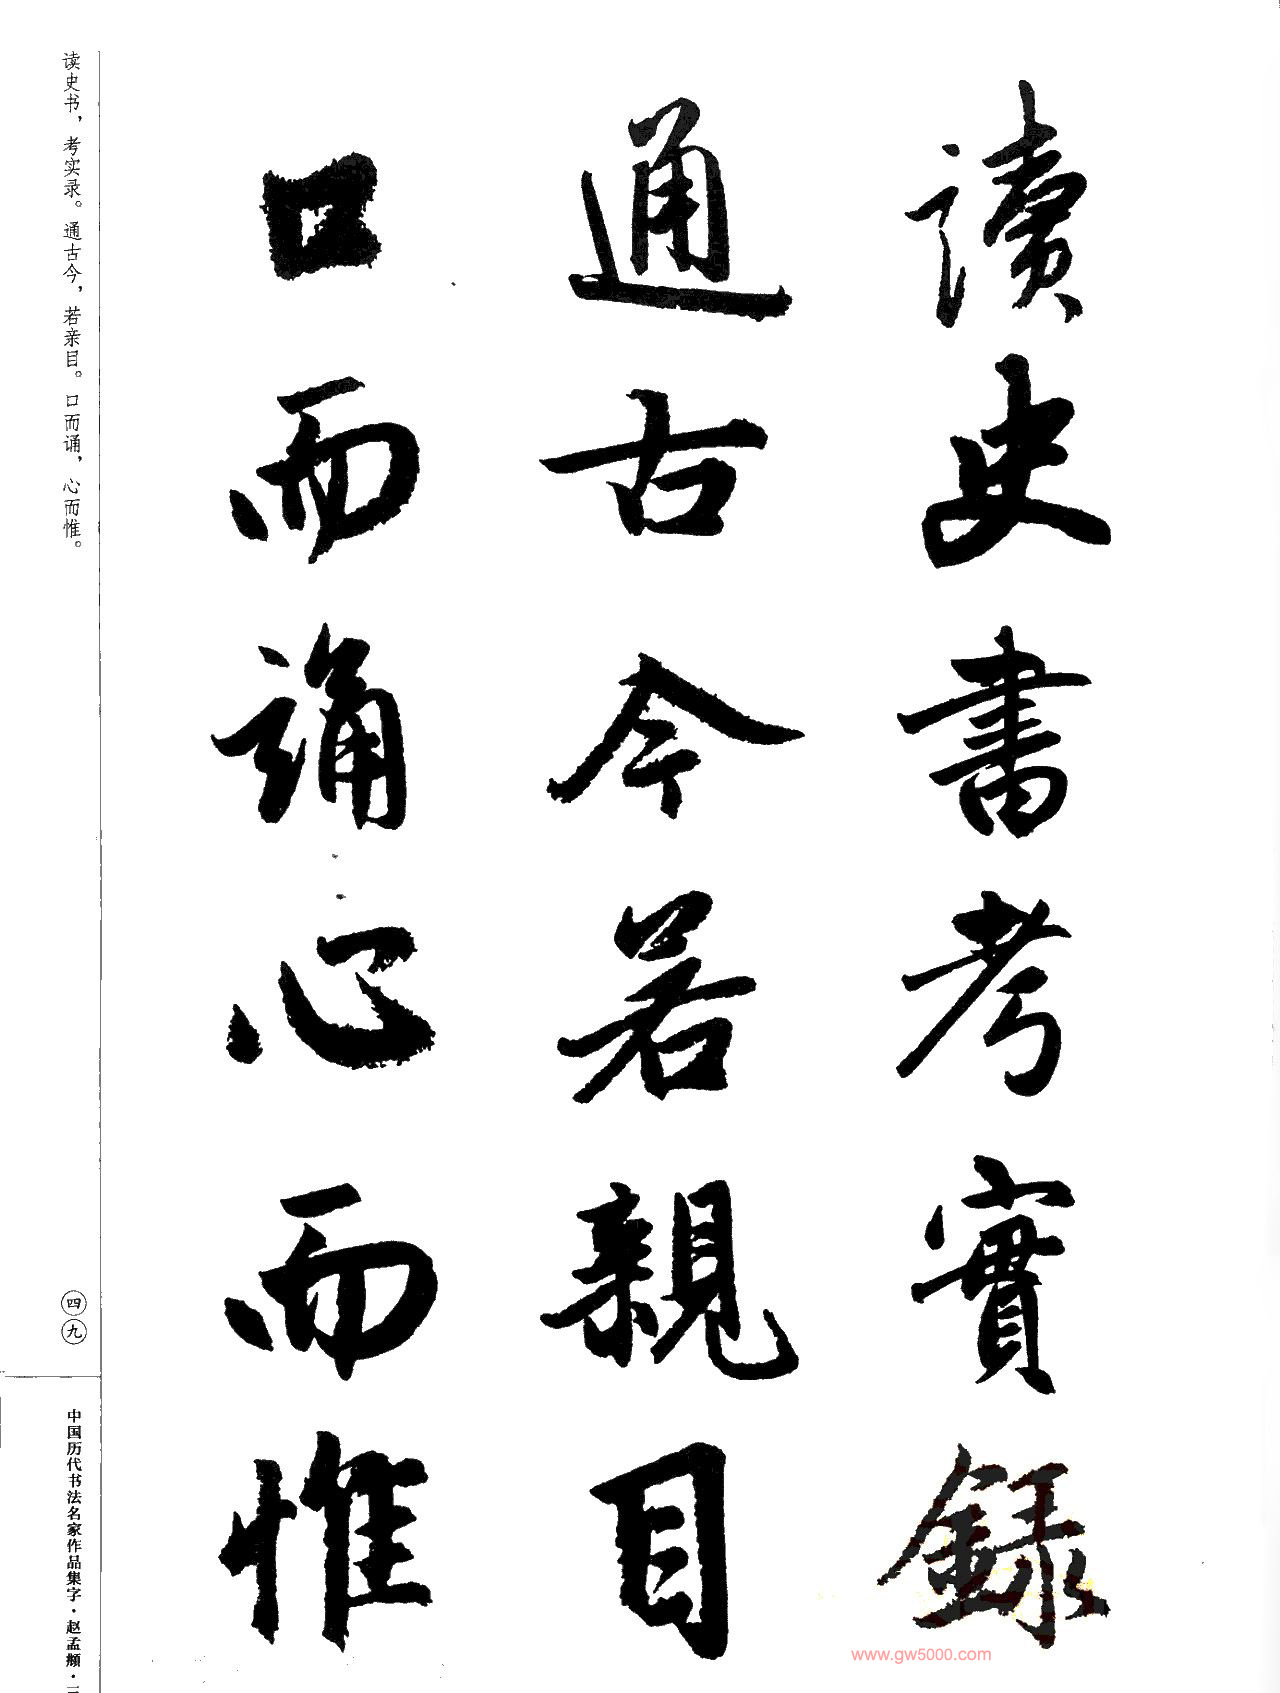 讀史書考實録
通古今若親目
口而誦心而惟
读史书，考实录。通古今，若亲目。口而诵，心而惟。
四九
中国历代书法名家作品集字·赵孟頫·三
www.gw5000.com